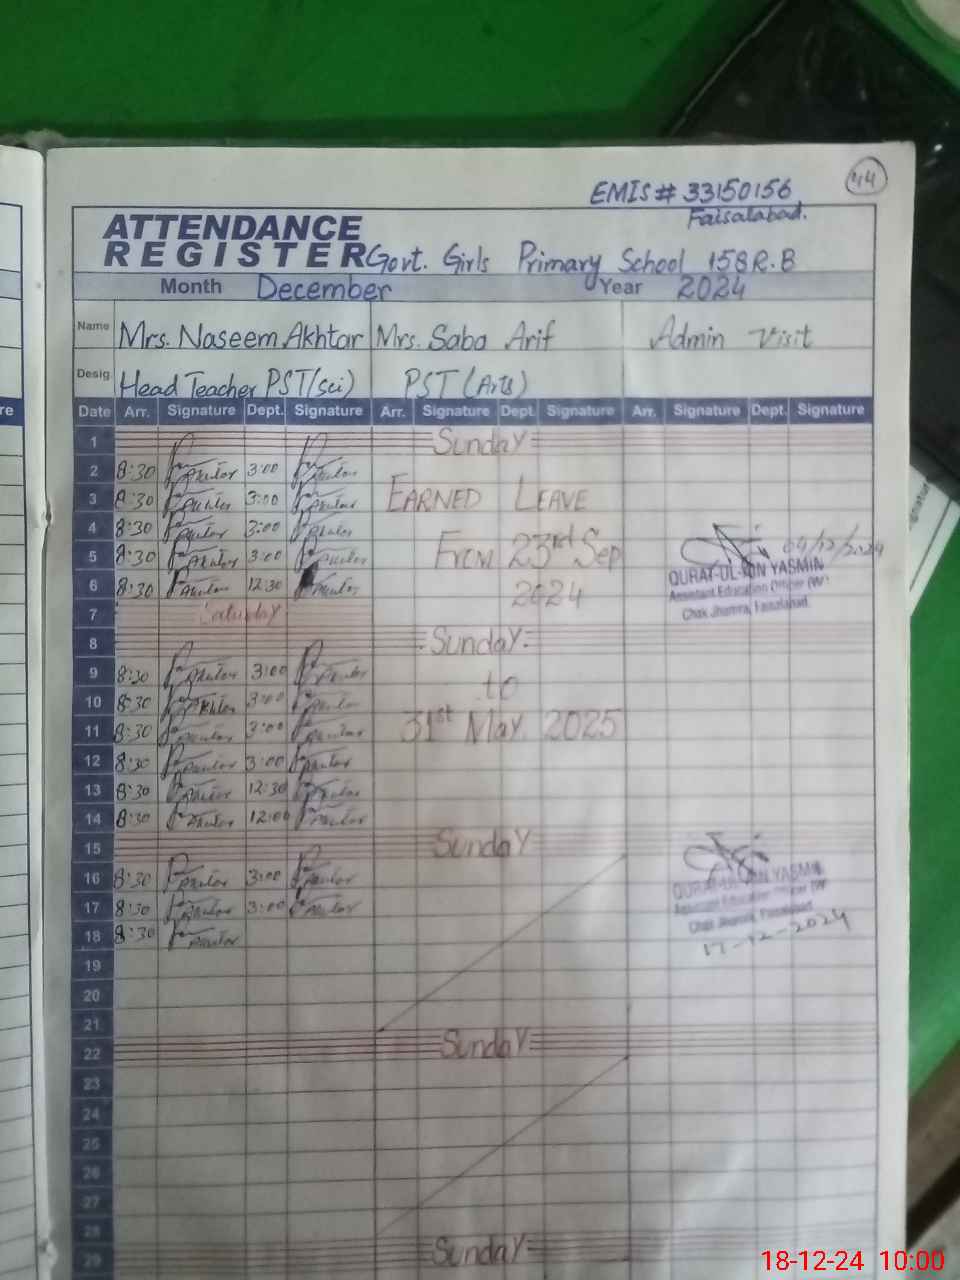 44
EMIS# 33150156
Faisalabad.
ATTENDANCE
REGISTER Govt. Girls Primary School 158 R.B
Month December Year 2024
Name Mrs. Naseem Akhtar Mrs. Saba Arif Admin Visit
Desig. Head Teacher PST(Sci) PST (Arts)
Date Arr. Signature Dept. Signature Arr. Signature Dept. Signature Arr. Signature Dept. Signature
1 Sunday
2 8:30 Akhtar 3:00 Akhtar
3 8:30 Akhtar 3:00 Akhtar EARNED LEAVE
4 8:30 Akhtar 3:00 Akhtar
5 8:30 Akhtar 3:00 Akhtar From 23rd Sep 04/12/2024
QURAT-UL-AIN YASMIN
6 8:30 Akhtar 12:30 Akhtar 2024 Assistant Education Officer (W)
7 Saturday Chak Jhumra, Faisalabad.
8 Sunday
9 8:30 Akhtar 3:00 Akhtar to
10 8:30 Akhtar 3:00 Akhtar
11 8:30 Akhtar 3:00 Akhtar 31st May, 2025
12 8:30 Akhtar 3:00 Akhtar
13 8:30 Akhtar 12:30 Akhtar
14 8:30 Akhtar 12:00 Akhtar
15 Sunday
16 8:30 Akhtar 3:00 Akhtar QURAT-UL-AIN YASMIN
17 8:30 Akhtar 3:00 Akhtar Assistant Education Officer (W)
Chak Jhumra, Faisalabad
18 8:30 Akhtar 17-12-2024
19
20
21
22 Sunday
23
24
25
26
27
28
29 Sunday
18-12-24 10:00